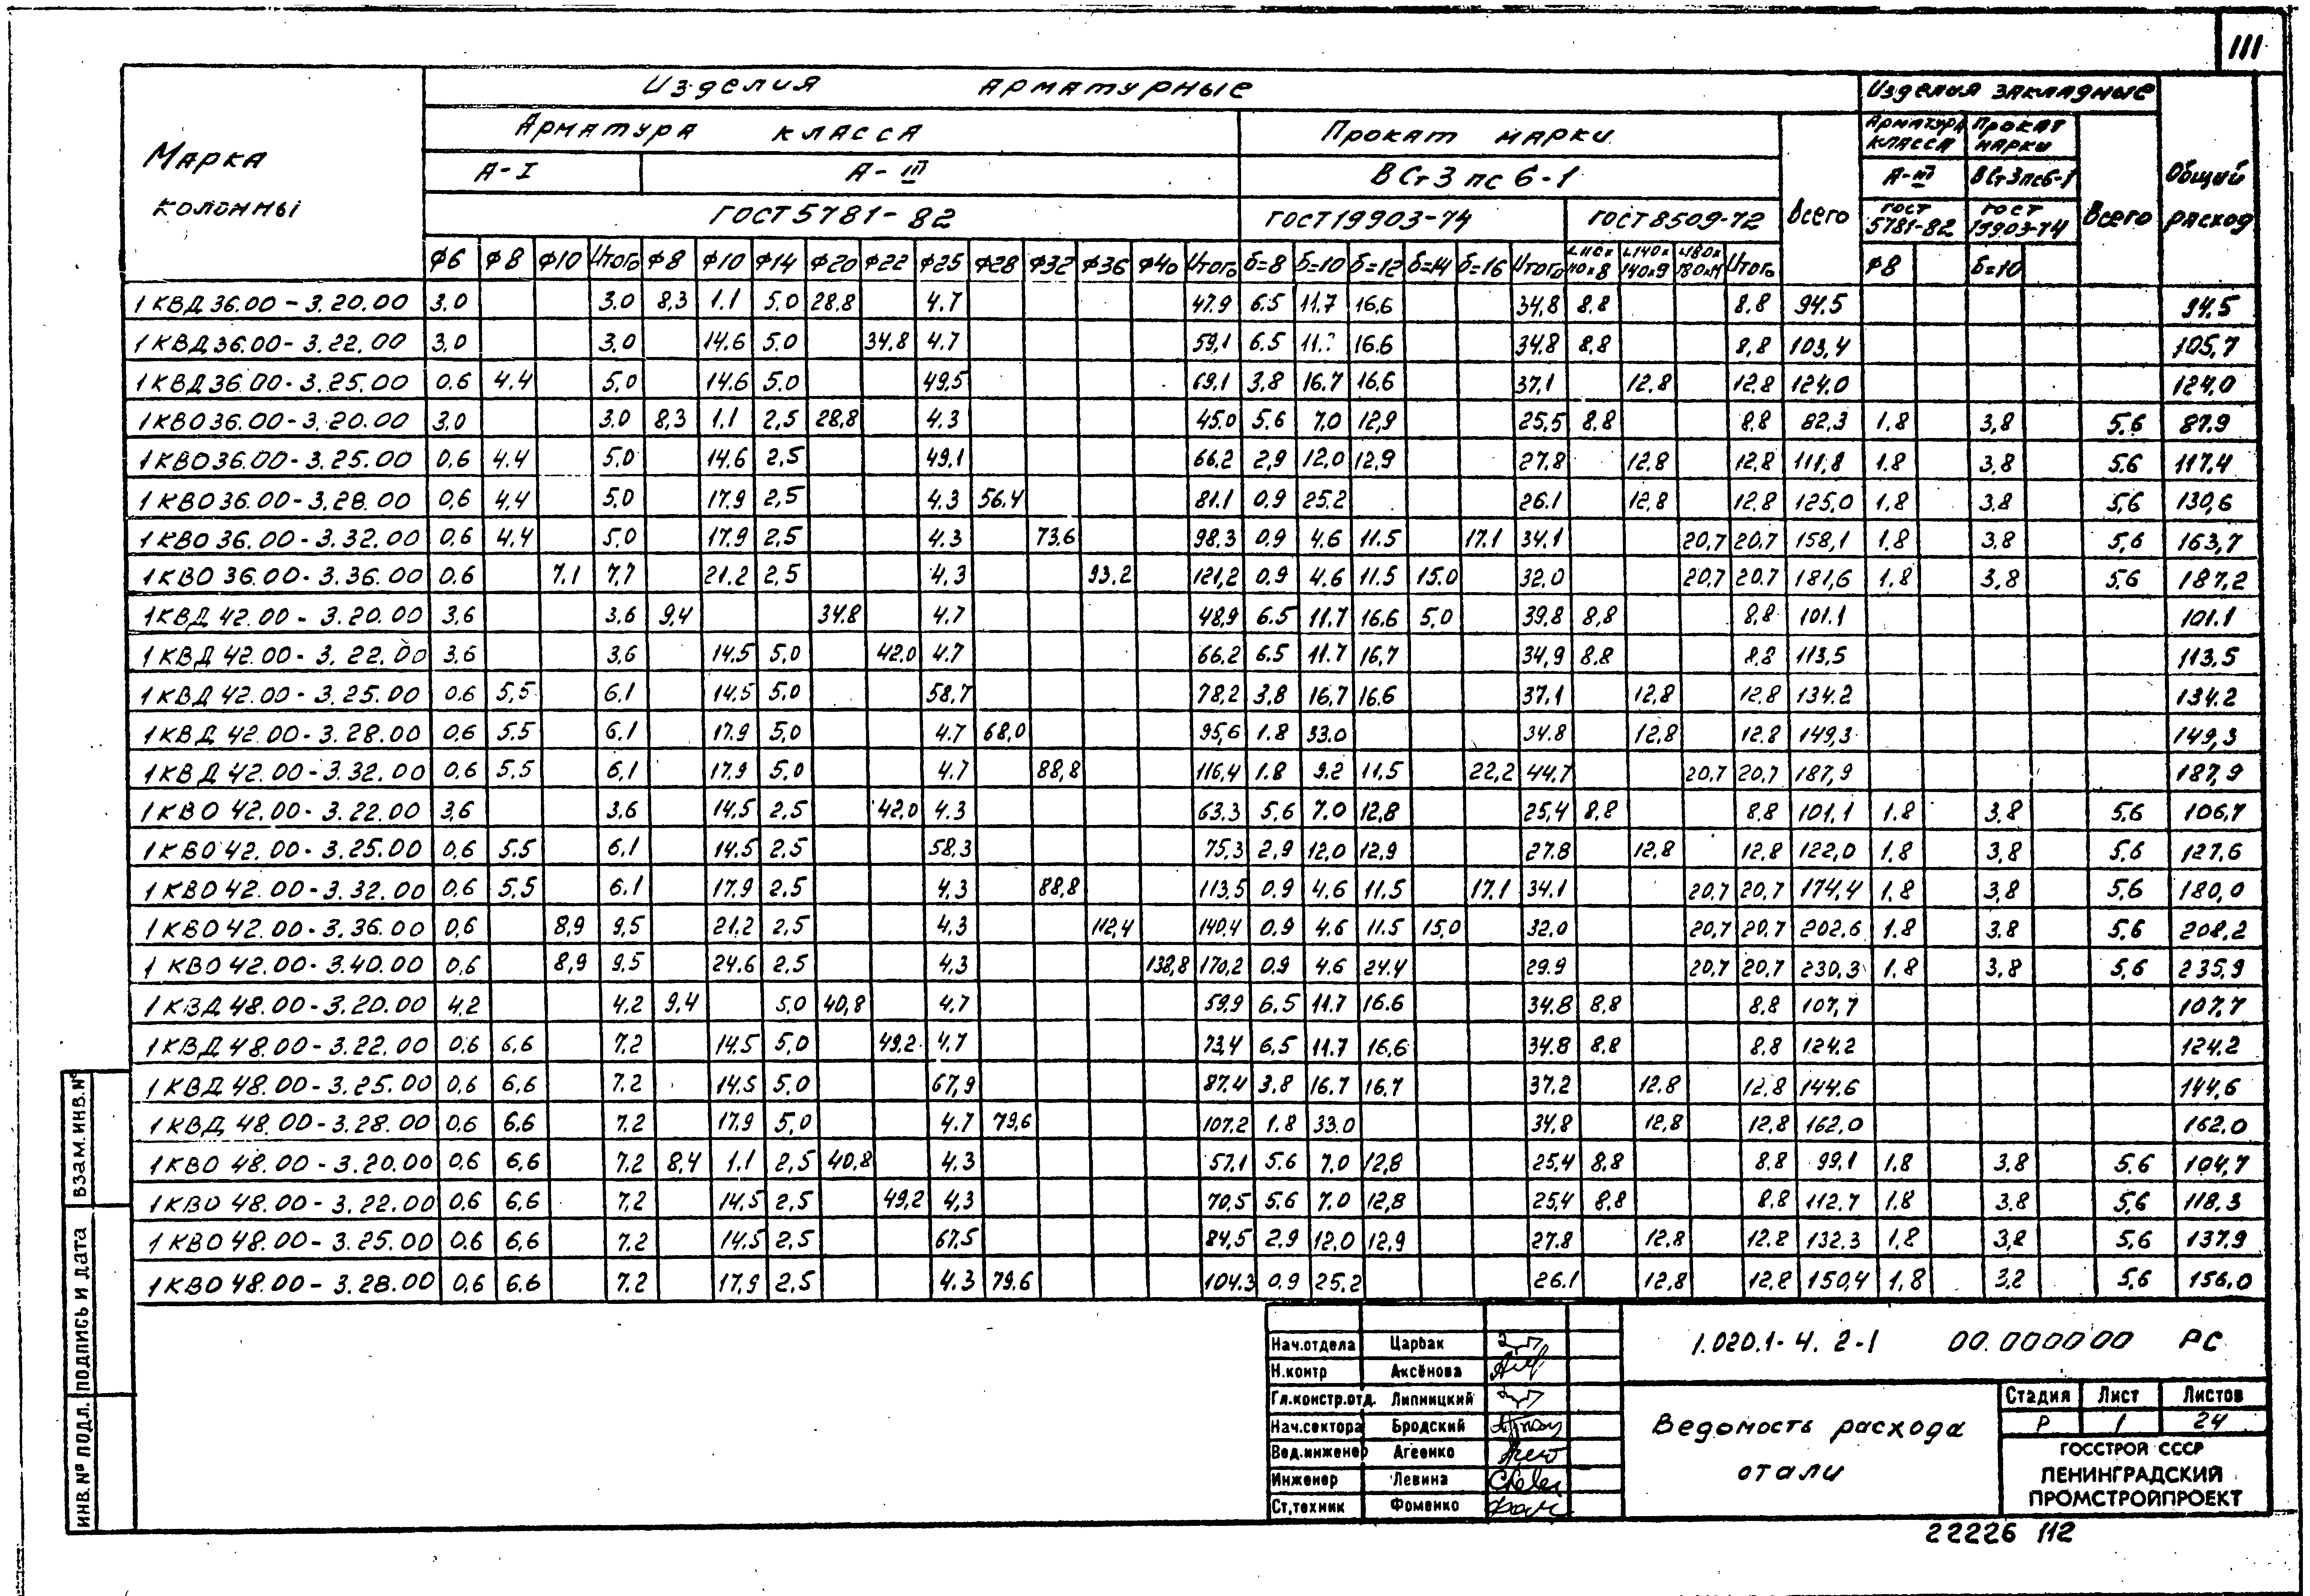 111
Изделия арматурные
Изделия закладные
Марка колонны
Арматура класса
Прокат марки
Всего
Арматура класса
Прокат марки
Всего
Общий расход
А-I
А-III
ВСт3пс6-1
А-III
ВСт3пс6-1
ГОСТ 5781-82
ГОСТ 19903-74
ГОСТ 8509-72
ГОСТ 5781-82
ГОСТ 19903-74
ф6 ф8 ф10 Итого ф8 ф10 ф14 ф20 ф22 ф25 ф28 ф32 ф36 ф40 Итого б=8 б=10 б=12 б=14 б=16 Итого L110х110х8 L140х140х9 L180х180х11 Итого ф8 б=10
1КВД 36.00-3.20.00 3.0 3.0 8,3 1.1 5.0 28.8 4.7 47.9 6.5 11.7 16.6 34,8 8.8 8.8 94.5 94.5
1КВД 36.00-3.22.00 3.0 3.0 14.6 5.0 34.8 4.7 59,1 6.5 16.6 34.8 8,8 8,8 103,4 105,7
1КВД 36.00-3.25.00 0.6 4.4 5.0 14.6 5.0 49.5 69,1 3.8 16.7 16.6 37,1 12.8 12.8 124.0 124.0
1КВО 36.00-3.20.00 3.0 3.0 8,3 1.1 2,5 28,8 4.3 45.0 5.6 7.0 12,9 25,5 8.8 8.8 82,3 1.8 3,8 5.6 87.9
1КВО 36.00-3.25.00 0.6 4.4 5.0 14.6 2,5 49,1 66.2 2,9 12,0 12,9 27,8 12,8 12,8 111,8 1.8 3,8 5.6 117,4
1КВО 36.00-3.28.00 0,6 4,4 5.0 17.9 2,5 4.3 56.4 81.1 0.9 25.2 26.1 12,8 12,8 125,0 1,8 3.8 5,6 130,6
1КВО 36.00-3.32.00 0,6 4.4 5.0 17.9 2.5 4.3 73.6 98.3 0.9 4.6 11.5 17.1 34.1 20,7 20.7 158,1 1.8 3.8 5,6 163,7
1КВО 36.00-3.36.00 0.6 7.1 7,7 21.2 2,5 4,3 93.2 121,2 0.9 4.6 11.5 15.0 32.0 20.7 20.7 181,6 1,8 3,8 5.6 187,2
1КВД 42.00-3.20.00 3,6 3,6 9,4 34.8 4.7 48,9 6.5 11.7 16.6 5,0 39,8 8,8 8,8 101.1 101.1
1КВД 42.00-3.22.00 3,6 3,6 14.5 5,0 42.0 4.7 66.2 6.5 11.7 16,7 34,9 8.8 8,8 113,5 113,5
1КВД 42.00-3.25.00 0.6 5,5 6.1 14,5 5,0 58,7 78,2 3,8 16,7 16.6 37,1 12,8 12,8 134.2 134.2
1КВД 42.00-3.28.00 0,6 5.5 6.1 17.9 5,0 4.7 68,0 95,6 1.8 33.0 34.8 12,8 12.8 149,3 149,3
1КВД 42.00-3.32.00 0,6 5.5 6,1 17.9 5.0 4.7 88,8 116,4 1.8 9.2 11.5 22,2 44,7 20,7 20,7 187,9 187,9
1КВО 42.00-3.22.00 3,6 3.6 14,5 2.5 42.0 4.3 63.3 5.6 7.0 12,8 25,4 8,8 8.8 101,1 1.8 3,8 5,6 106,7
1КВО 42.00-3.25.00 0,6 5.5 6,1 14.5 2,5 58,3 75,3 2,9 12,0 12,9 27.8 12,8 12,8 122,0 1,8 3,8 5,6 127,6
1КВО 42.00-3.32.00 0,6 5,5 6.1 17,9 2.5 4,3 88,8 113,5 0.9 4.6 11.5 17.1 34.1 20,7 20,7 174,4 1,8 3,8 5,6 180,0
1КВО 42.00-3.36.00 0,6 8,9 9,5 21.2 2,5 4,3 112,4 140,4 0.9 4.6 11.5 15,0 32.0 20,7 20,7 202.6 1.8 3.8 5,6 208,2
1КВО 42.00-3.40.00 0,6 8,9 9.5 24.6 2.5 4,3 138,8 170,2 0.9 4.6 24.4 29.9 20,7 20,7 230,3 1,8 3,8 5,6 235,9
1КВД 48.00-3.20.00 4,2 4,2 9,4 5,0 40,8 4,7 59,9 6,5 11.7 16.6 34.8 8,8 8,8 107,7 107,7
1КВД 48.00-3.22.00 0,6 6,6 7.2 14.5 5,0 49,2 4,7 73,4 6,5 11.7 16,6 34.8 8,8 8,8 124.2 124.2
1КВД 48.00-3.25.00 0,6 6,6 7.2 14,5 5,0 67,9 87,4 3,8 16,7 16,7 37.2 12.8 12,8 144.6 144,6
1КВД 48.00-3.28.00 0,6 6,6 7.2 17.9 5,0 4.7 79,6 107,2 1.8 33.0 34,8 12,8 12,8 162,0 162,0
1КВО 48.00-3.20.00 0,6 6,6 7,2 8,4 1.1 2,5 40,8 4.3 57,1 5.6 7.0 12,8 25,4 8,8 8.8 99,1 1.8 3,8 5.6 104,7
1КВО 48.00-3.22.00 0.6 6,6 7,2 14,5 2,5 49,2 4,3 70,5 5,6 7.0 12,8 25,4 8,8 8.8 112.7 1.8 3.8 5,6 118.3
1КВО 48.00-3.25.00 0,6 6,6 7.2 14.5 2.5 67,5 84,5 2,9 12.0 12,9 27.8 12.8 12.8 132.3 1,8 3,8 5,6 137.9
1КВО 48.00-3.28.00 0,6 6,6 7.2 17,9 2.5 4.3 79.6 104.3 0.9 25,2 26.1 12,8 12,8 150,4 1,8 3,2 5,6 156,0
ВЗАМ. ИНВ. №
ПОДПИСЬ И ДАТА
ИНВ. № ПОДЛ.
Нач.отдела Царбак
Н.контр Аксёнова
Гл.констр.отд. Липницкий
Нач.сектора Бродский
Вед.инженер Агеенко
Инженер Левина
Ст.техник Фоменко
1.020.1-4. 2-1 00.000000 РС
Ведомость расхода
стали
Стадия Лист Листов
Р 1 24
ГОССТРОЙ СССР
ЛЕНИНГРАДСКИЙ
ПРОМСТРОЙПРОЕКТ
22226 112